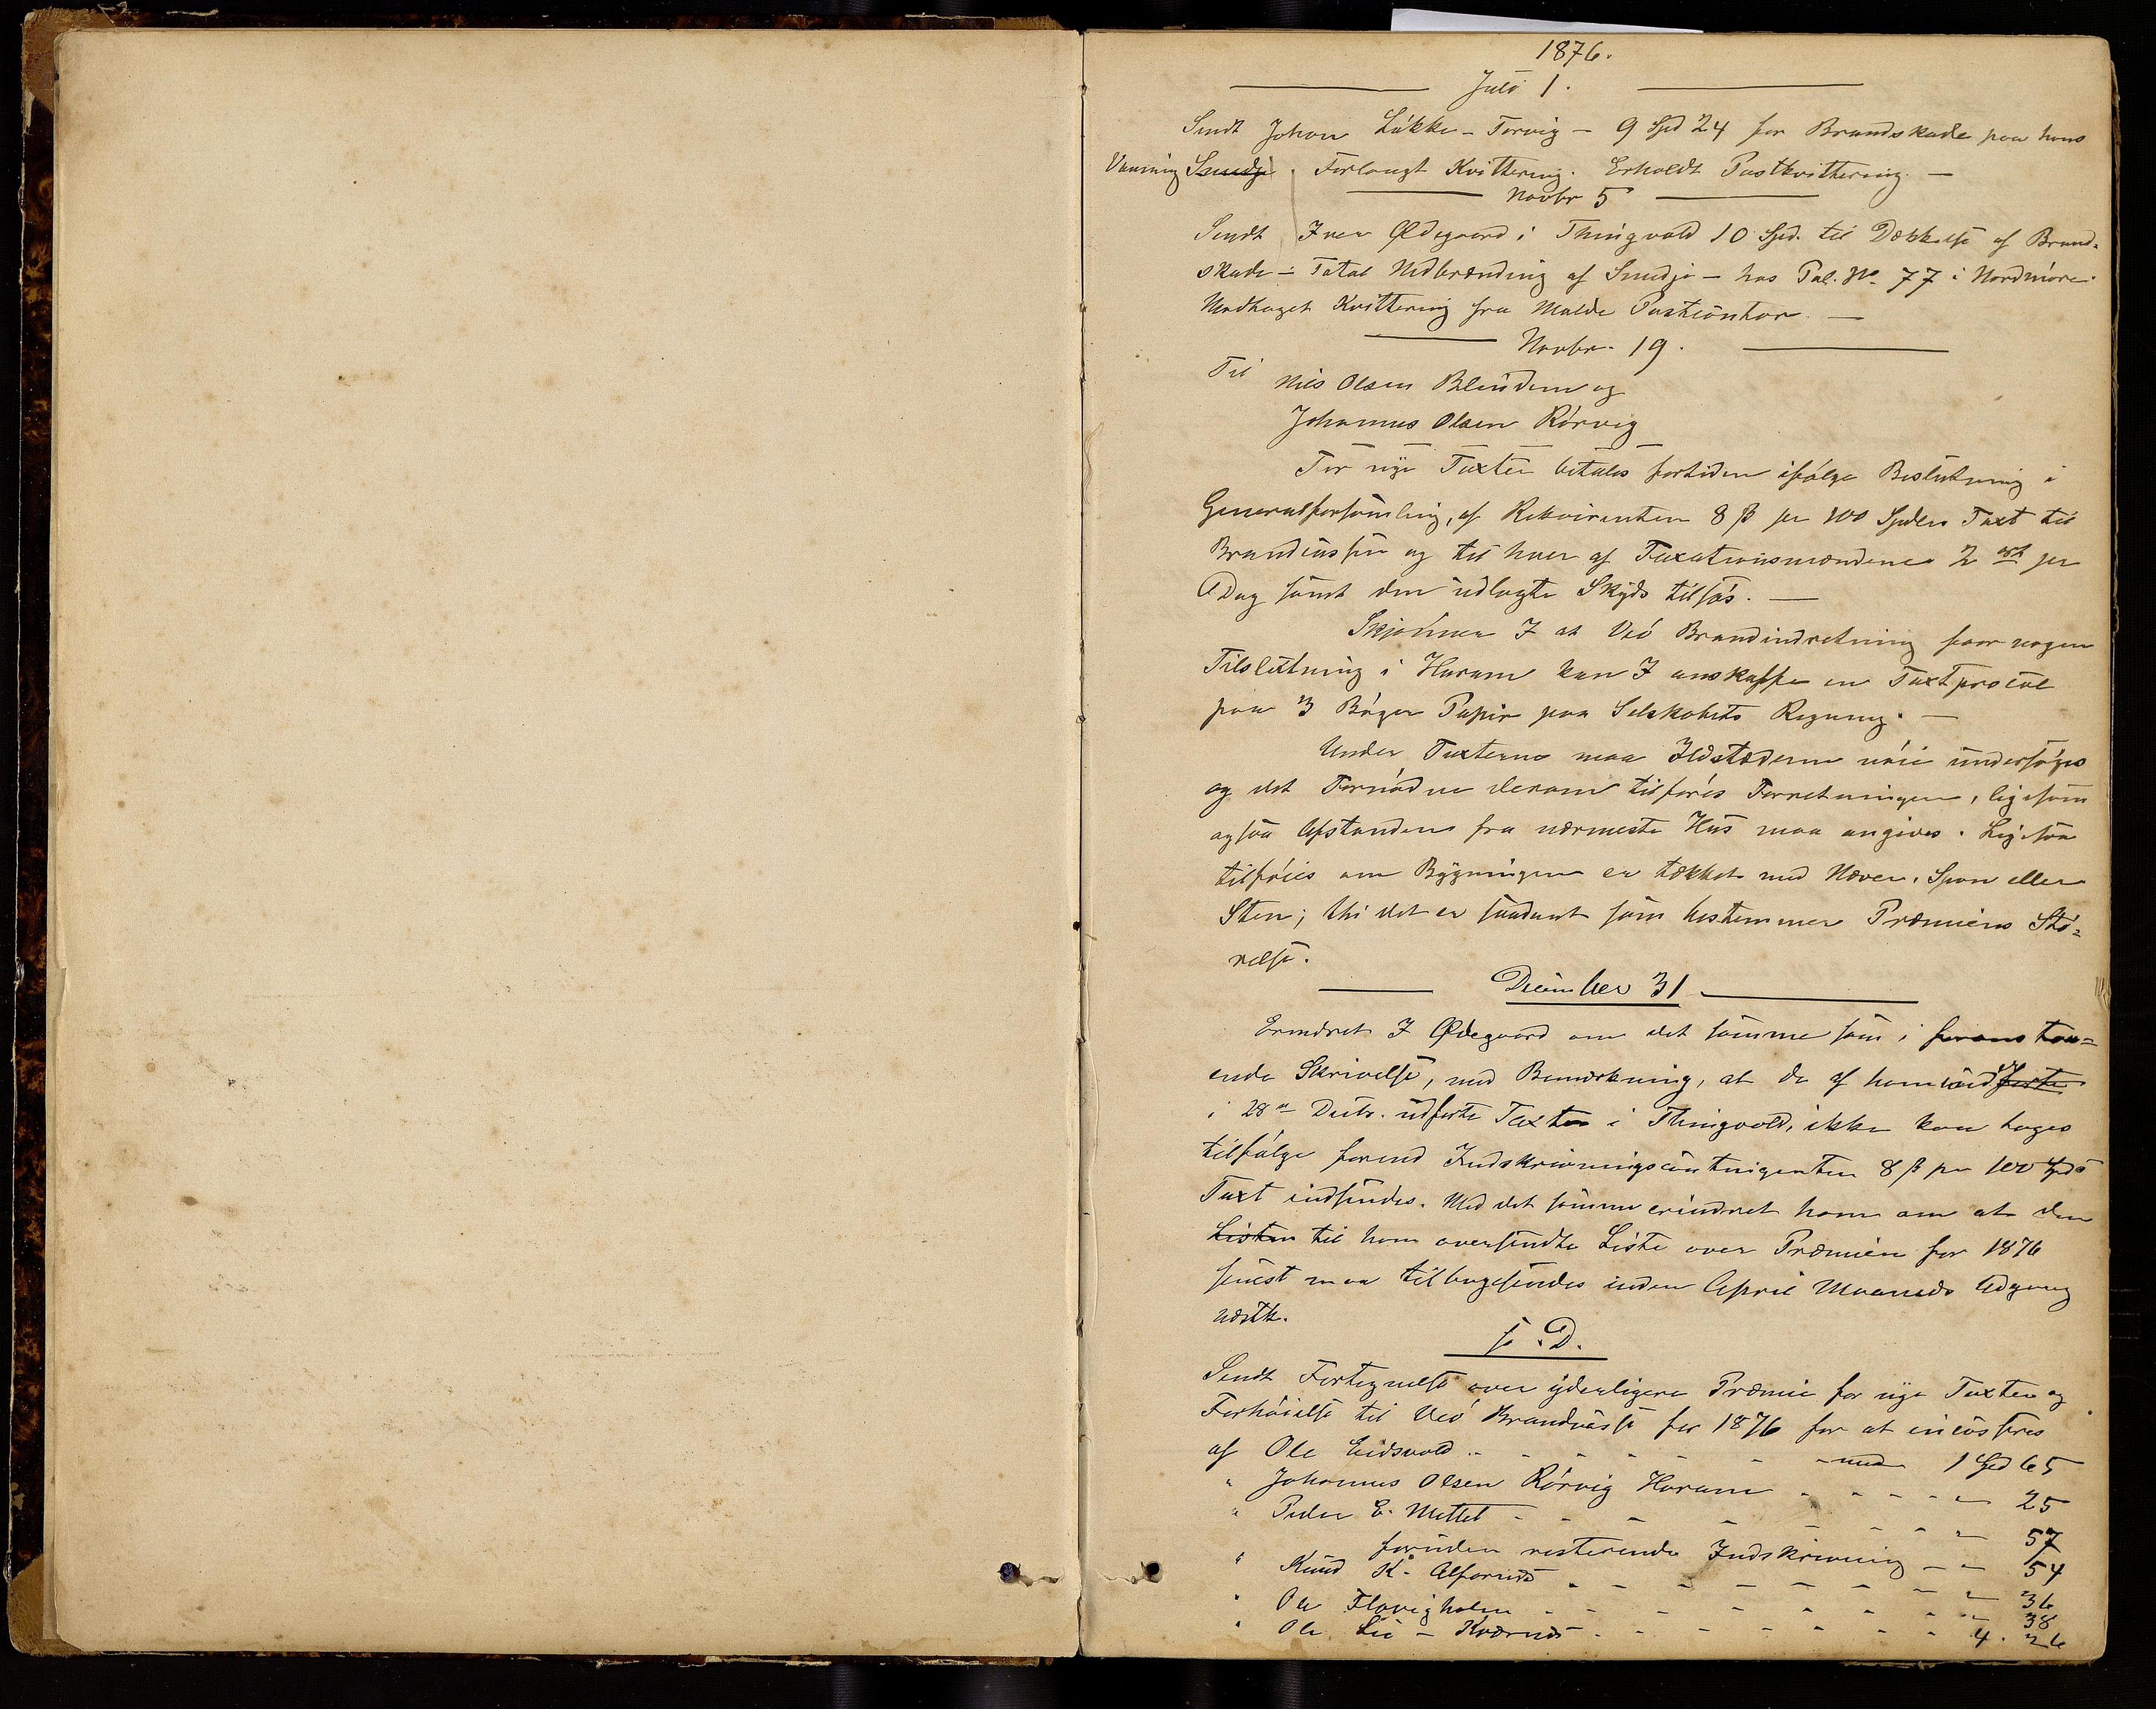 1876.
Juli 1.
Sendt Johan Løkke - Torvig - 9 Spd 24 for Brandskade paa hans
Vaaning Smedje. Forlangt Kvittering. Erholdt Postkvittering. —
Novbr 5
Sendt Iver Ødegaard i Thingvold 10 Spd. til Dækkelse af Brand-
skade - Total Nedbrænding af Smedje - hos Pol. No. 77 i Nordmøre.
Modtaget Kvittering fra Molde Postcontor. —
Novbr. 19.
Til Nils Olsen Blindem og
Johannes Olsen Rørvig
For nye Taxter betales fortiden ifølge Beslutning i
Generalforsamling, af Rekvirenten 8 β pr 100 Spdlrs Taxt til
Brandcassen og til hver af Taxationsmændene 2 ort pr
Dag samt den udlagte Skyds tilsøs. —
Skjønner I at Veø Brandindretning faar nogen
Tilslutning i Haram kan I anskaffe en Taxtprotocol
paa 3 Bøger Papir paa Selskabets Regning. —
Under Taxterne maa Ildstæderne nøie undersøges
og det Fornødne derom tilføres Forretningen, ligesom
ogsaa Afstanden fra nærmeste Hus maa angives. Ligesaa
tilføies om Bygningen er tækket med Næver, Spon eller
Sten; thi det er saadant som bestemmer Præmiens Stø-
relse.
December 31
Erindret I Ødegaard om det samme som i foranstaa-
ende Skrivelse, med Bemærkning, at de af ham
i 28de Decbr. udførte Taxter i Thingvold, ikke kan tages
tilfølge forend Indskrivningscontingenten 8 β pr 100 Spds
Taxt indsendes. Med det samme erindret ham om at den
Listen til ham oversendte Liste over Præmien for 1876
senest maa tilbagesendes inden April Maaneds Udgang
næstk.
s. D.
Sendt Fortegnelse over yderligere Præmie for nye Taxter og
Forhøielse til Veø Brandcasse for 1876 for at incasseres
af Ole Eidsvold - - - - - - - med 1 Spd 65
" Johannes Olsen Rørvig Haram - - - - - " 25
" Peder E. Mittet - - - - - - - - " 57
foruden resterende Indskrivning - - " 54
" Knud K. Alfarnæs - - - - - - - - " 36
" Ole Flovigholm - - - - - - - - " 38
" Ole Lie - Kvernæs - - - - - - - 4. 26